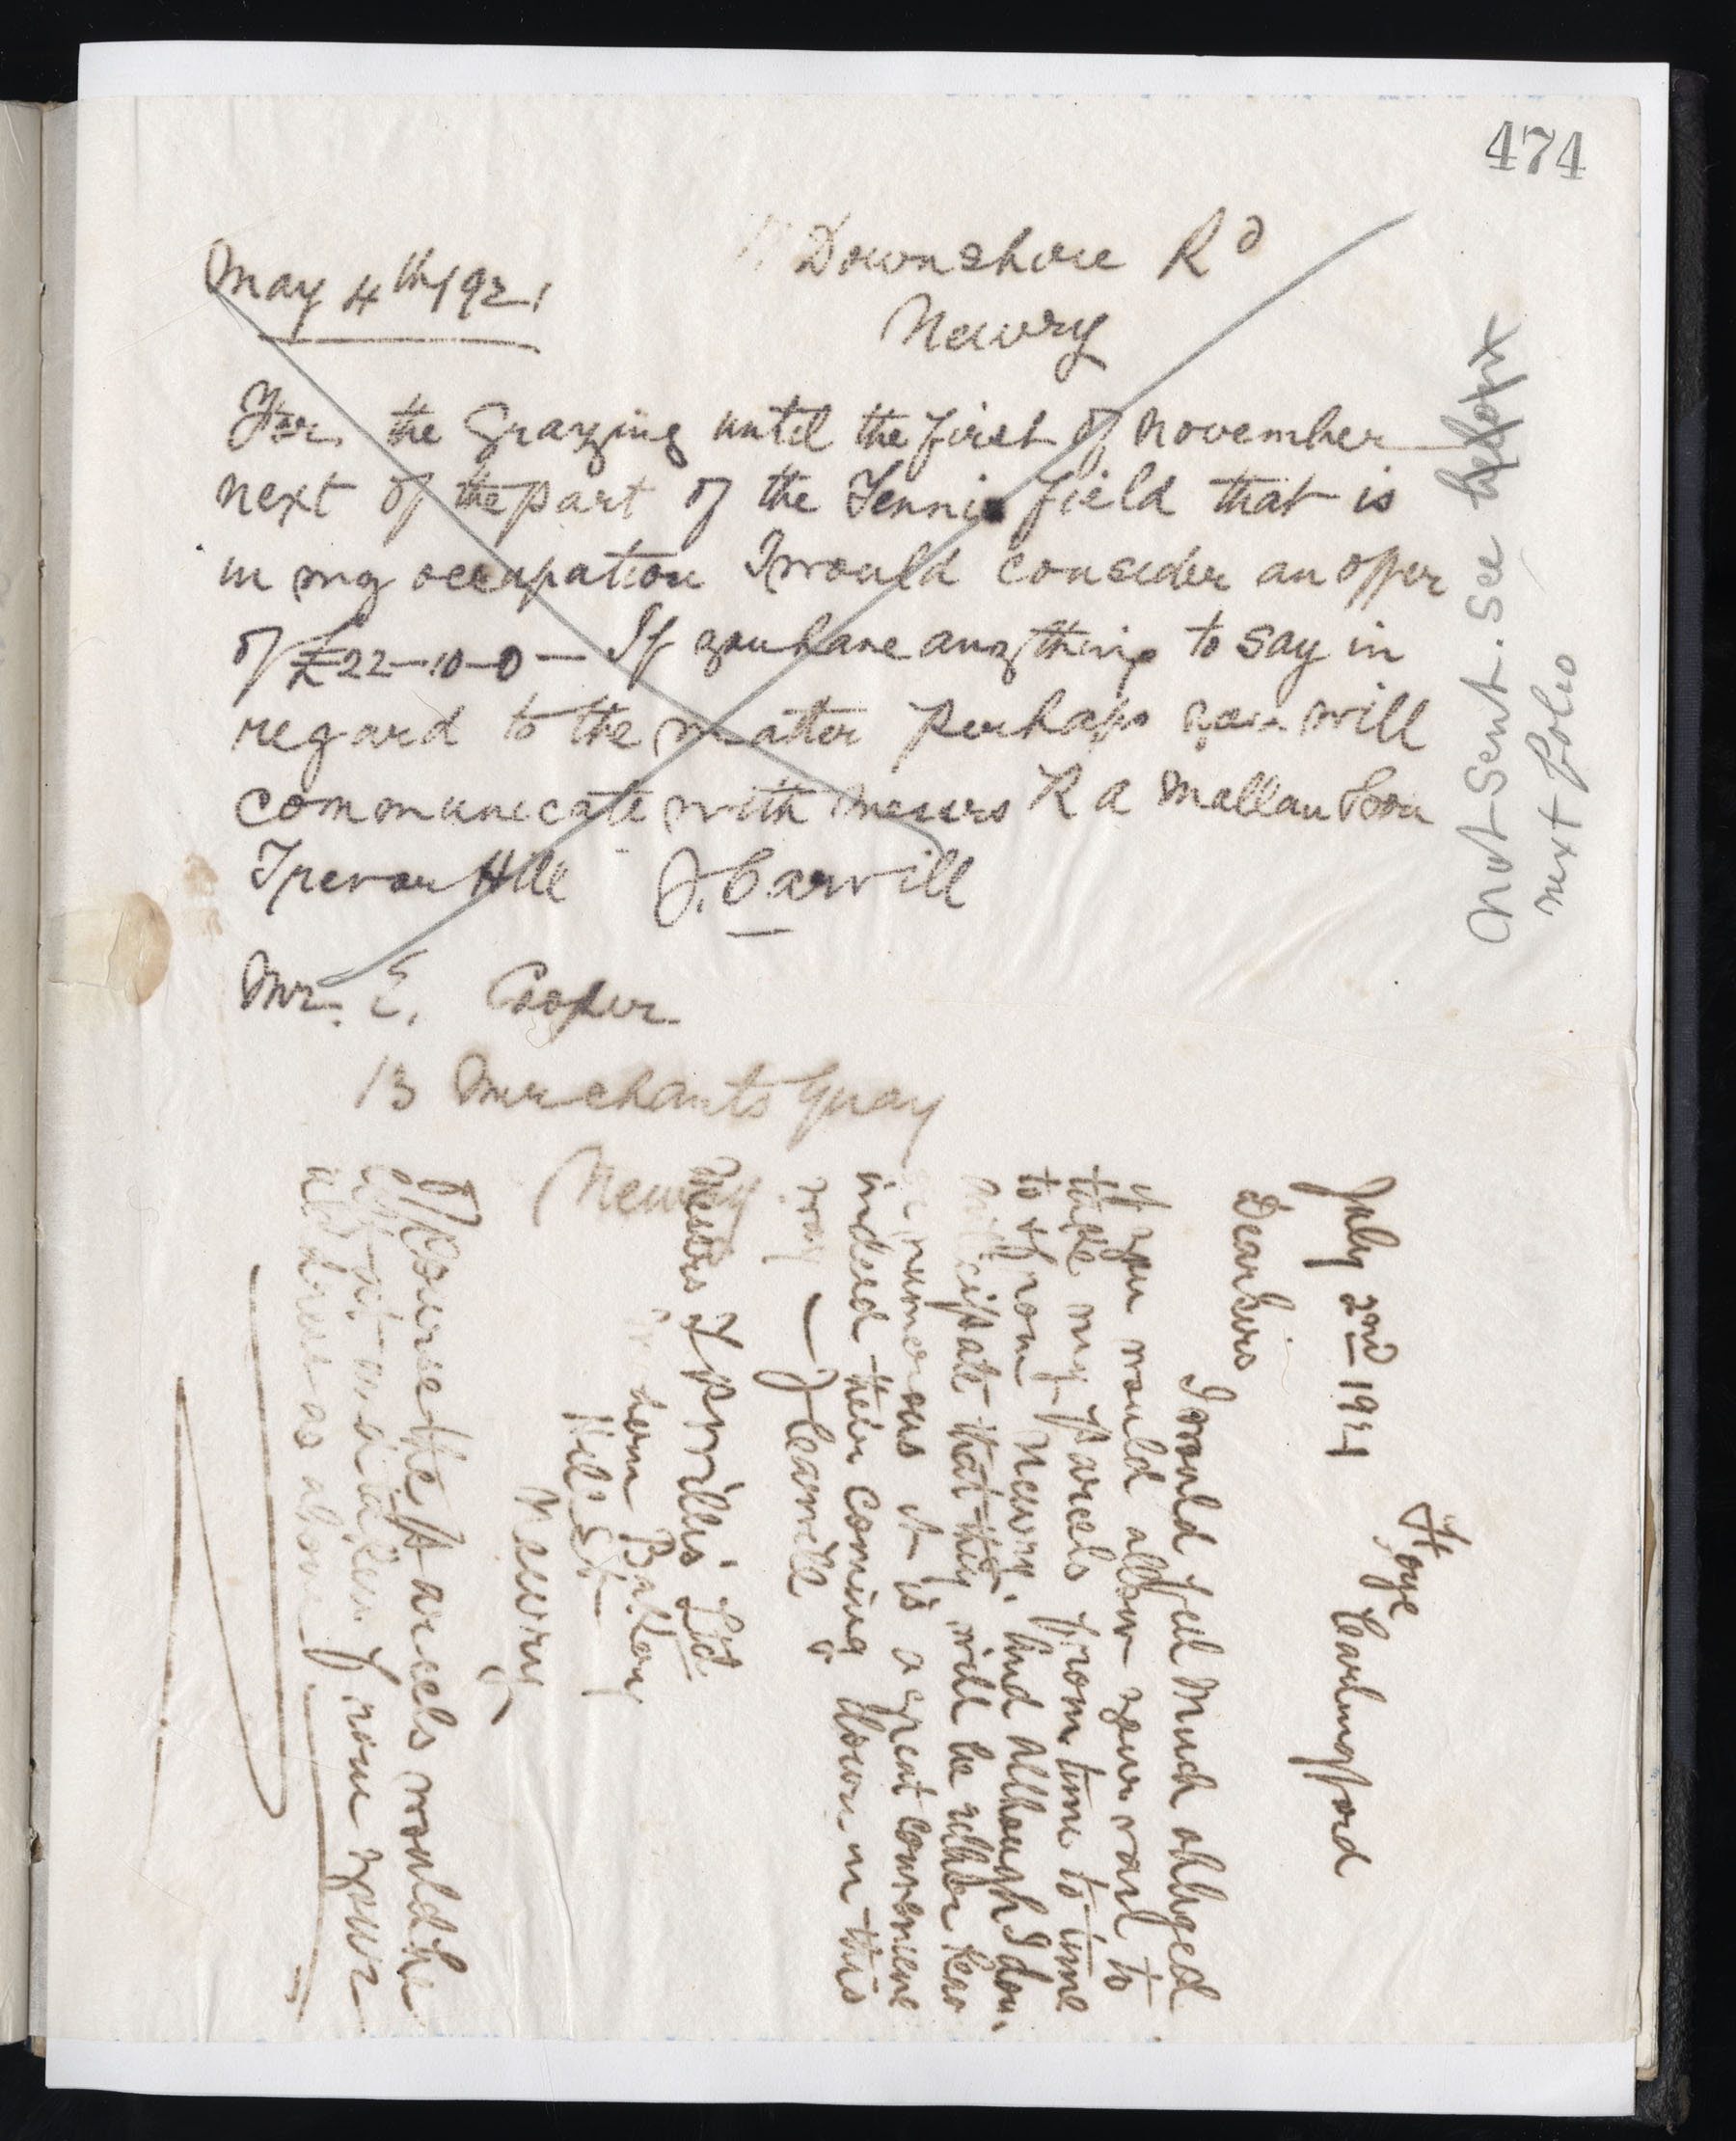 474
Downshire Rd
May 4th 1921
Newry
For the Grazing until the first of November
next of the part of the Tennis field that is
in my occupation I would consider an offer
of £22-10-0 — If you have anything to say in
regard to the matter perhaps you will
communicate with Messrs R A Mallan & Son
Trevor Hill J. Carvill
Mr. E. Cooper
13 Merchants Quay
Newry
Not sent. See before
next folio
Foye
July 2nd 1921 Carlingford
Dear Sirs
I would feel much obliged
if you would allow your van to
take my parcels from time to time
to & from Newry. And although I don't
anticipate that they will be either heavy
or numerous it is a great convenience
indeed their coming down in this
way — J Carvill
Messrs F P Willis Ltd
Bakery
Hill St
Newry
Of course the parcels would be
left at and taken from your
address as above